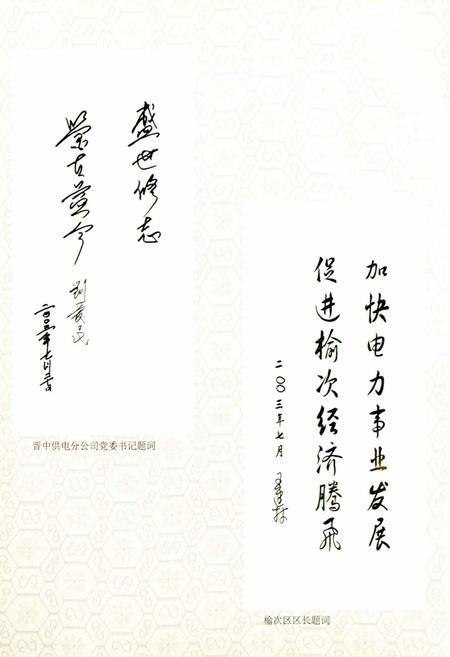 盛世修志
鉴古益今
二〇〇三年七月
晋中供电分公司党委书记题词
加快电力事业发展
促进榆次经济腾飞
二〇〇三年七月
榆次区区长题词